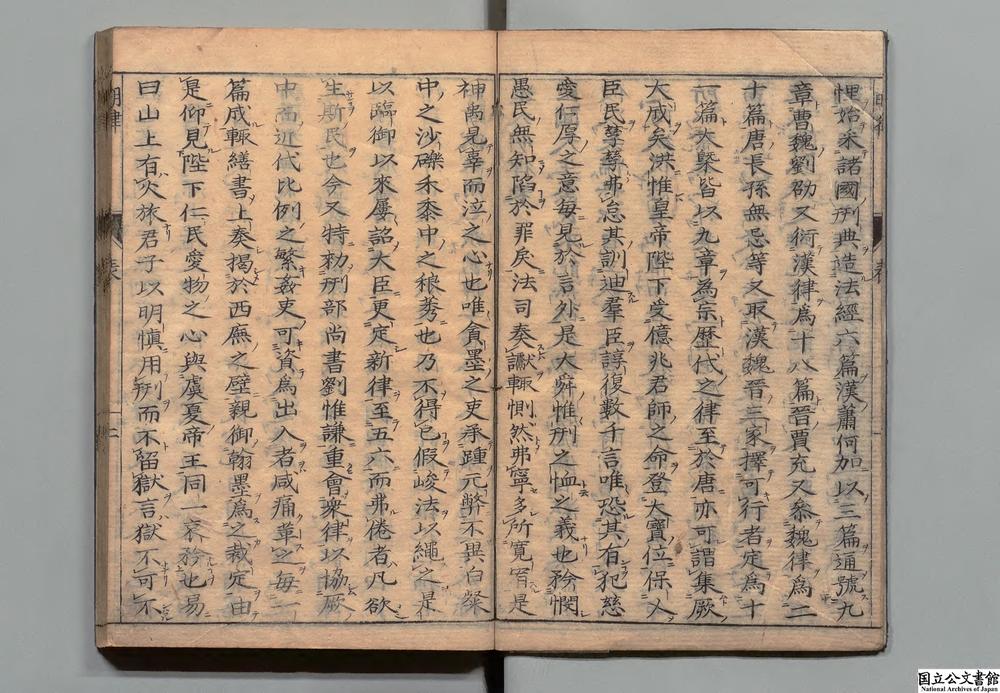 悝始采諸國刑典造法經六篇漢蕭何加以三篇通號九
章曹魏劉劭又衍漢律爲十八篇晉賈充又叅魏律爲二
十篇唐長孫無忌等又取漢魏晉三家擇可行者定爲十
二篇大槩皆以九章為宗歷代之律至於唐亦可謂集厥
大成矣洪惟皇帝陛下受億兆君師之命登大寶位保人
臣民孳孳弗怠其訓迪羣臣諄復數千言唯恐其有犯慈
愛仁厚之意每見於言外是大舜惟刑之恤之義也矜憫
愚民無知陷於罪戾法司奏讞輙惻然弗寧多所寬宥是
神禹見辜而泣之心也唯貪墨之吏承踵元弊不異白粲
中之沙礫禾黍中之稂莠也乃不得已假峻法以繩之是
以臨御以來屢詔大臣更定新律至五六而弗倦者凡欲
生斯民也今又特勑刑部尚書劉惟謙重會衆律以協厥
中而近代比例之繁姦吏可資為出入者咸痛革之每一
篇成輙繕書上奏揭於西廡之壁親御翰墨爲之裁定由
是仰見陛下仁民愛物之心與虞夏帝王同一哀矜也易
曰山上有火旅君子以明慎用刑而不留獄言獄不可不
明律
国立公文書館
National Archives of Japan